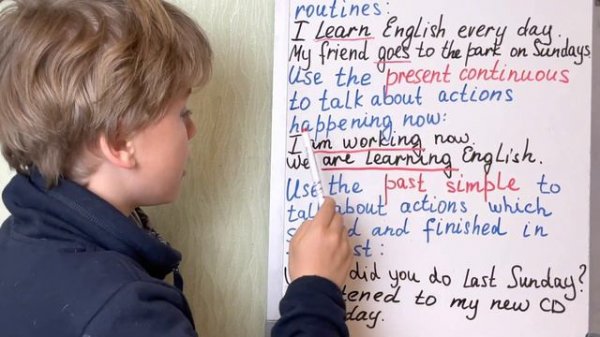 routines:
I learn English every day.
My friend goes to the park on Sundays.
Use the present continuous
to talk about actions
happening now:
I am working now.
We are learning English.
Use the past simple to
talk about actions which
and finished in
did you do last Sunday?
to my new CD